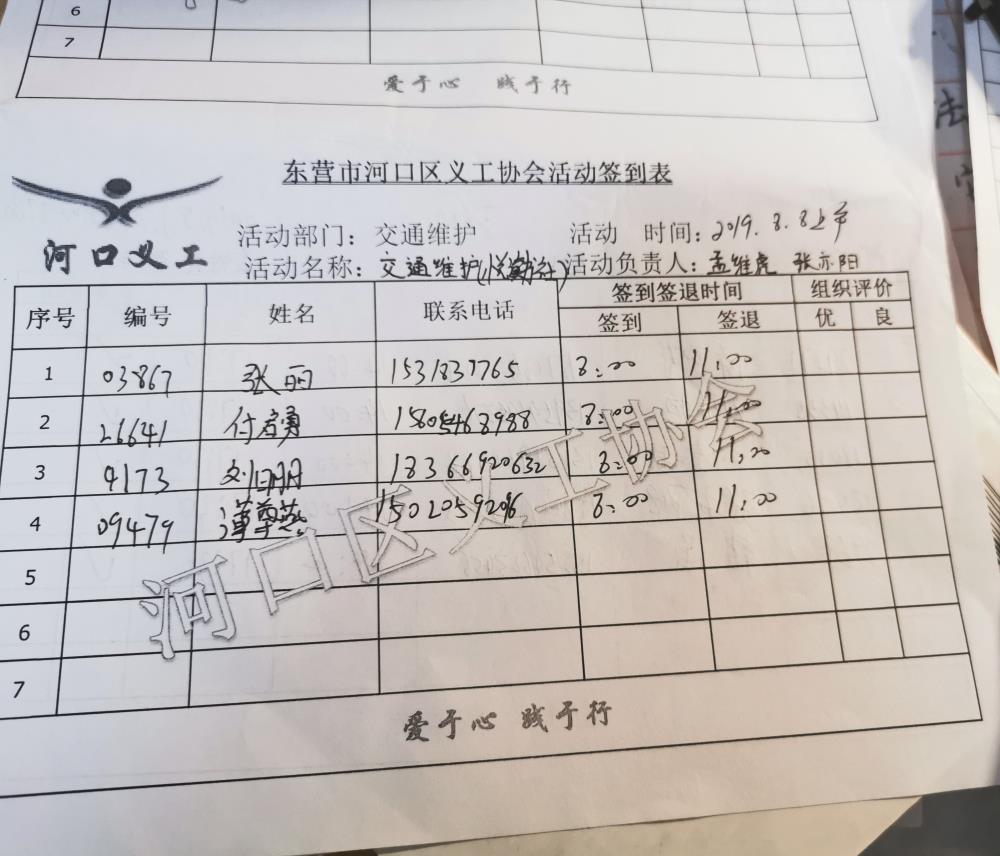 6
7
爱于心 践于行
法
东营市河口区义工协会活动签到表
河口义工
活动部门：交通维护 活动 时间：2019.8.8上午
活动名称：交通维护 活动负责人：孟维虎 张亦阳
序号 编号 姓名 联系电话 签到签退时间 组织评价
签到 签退 优 良
1 03867 张丽 1531837765 8:00 11:00
2 26641 付春勇 15805468988 8:00 11:00
3 4173 刘明明 18366920632 8:00 11:00
4 09479 燕 15020592096 8:00 11:00
5
6
7
爱于心 践于行
河口区义工协会